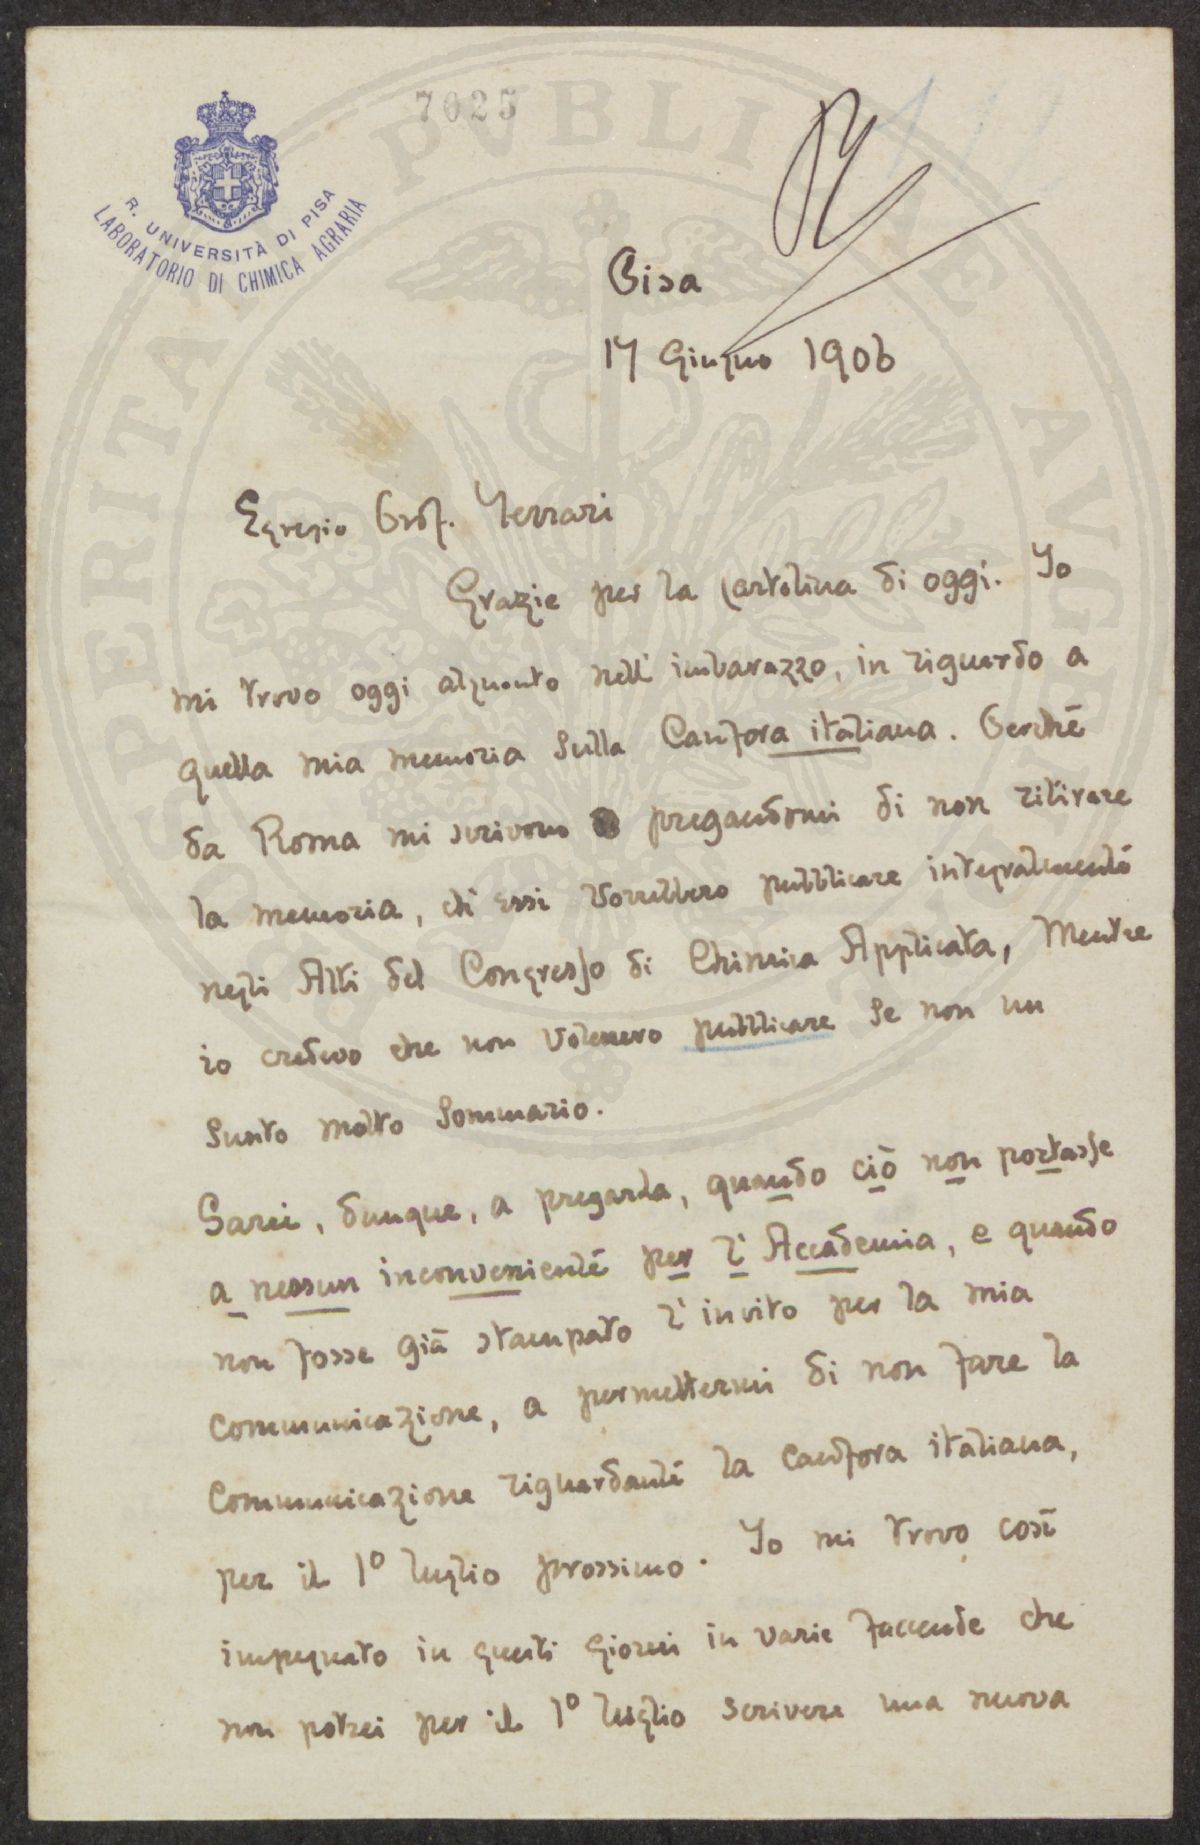 7025
R. UNIVERSITÀ DI PISA
LABORATORIO DI CHIMICA AGRARIA
PROSPERITATI PVBLICAE AVGENDAE
Pisa
17 Giugno 1906
Egregio Prof. Ferrari
Grazie per la cartolina di oggi. Io
mi trovo oggi alquanto nell' imbarazzo, in riguardo a
quella mia memoria sulla Canfora italiana. Perchè
da Roma mi scrivono pregandomi di non ritirare
la memoria, ch' essi vorrebbero pubblicare integralmente
negli Atti del Congresso di Chimica Applicata, mentre
io credevo che non volessero pubblicare se non un
sunto molto sommario.
Sarei, dunque, a pregarla, quando ciò non portasse
a nessun inconveniente per l' Accademia, e quando
non fosse già stampato l' invito per la mia
communicazione, a permettermi di non fare la
communicazione riguardante la canfora italiana,
per il 1º luglio prossimo. Io mi trovo così
impegnato in questi giorni in varie faccende che
non potrei per il 1º luglio scrivere una nuova